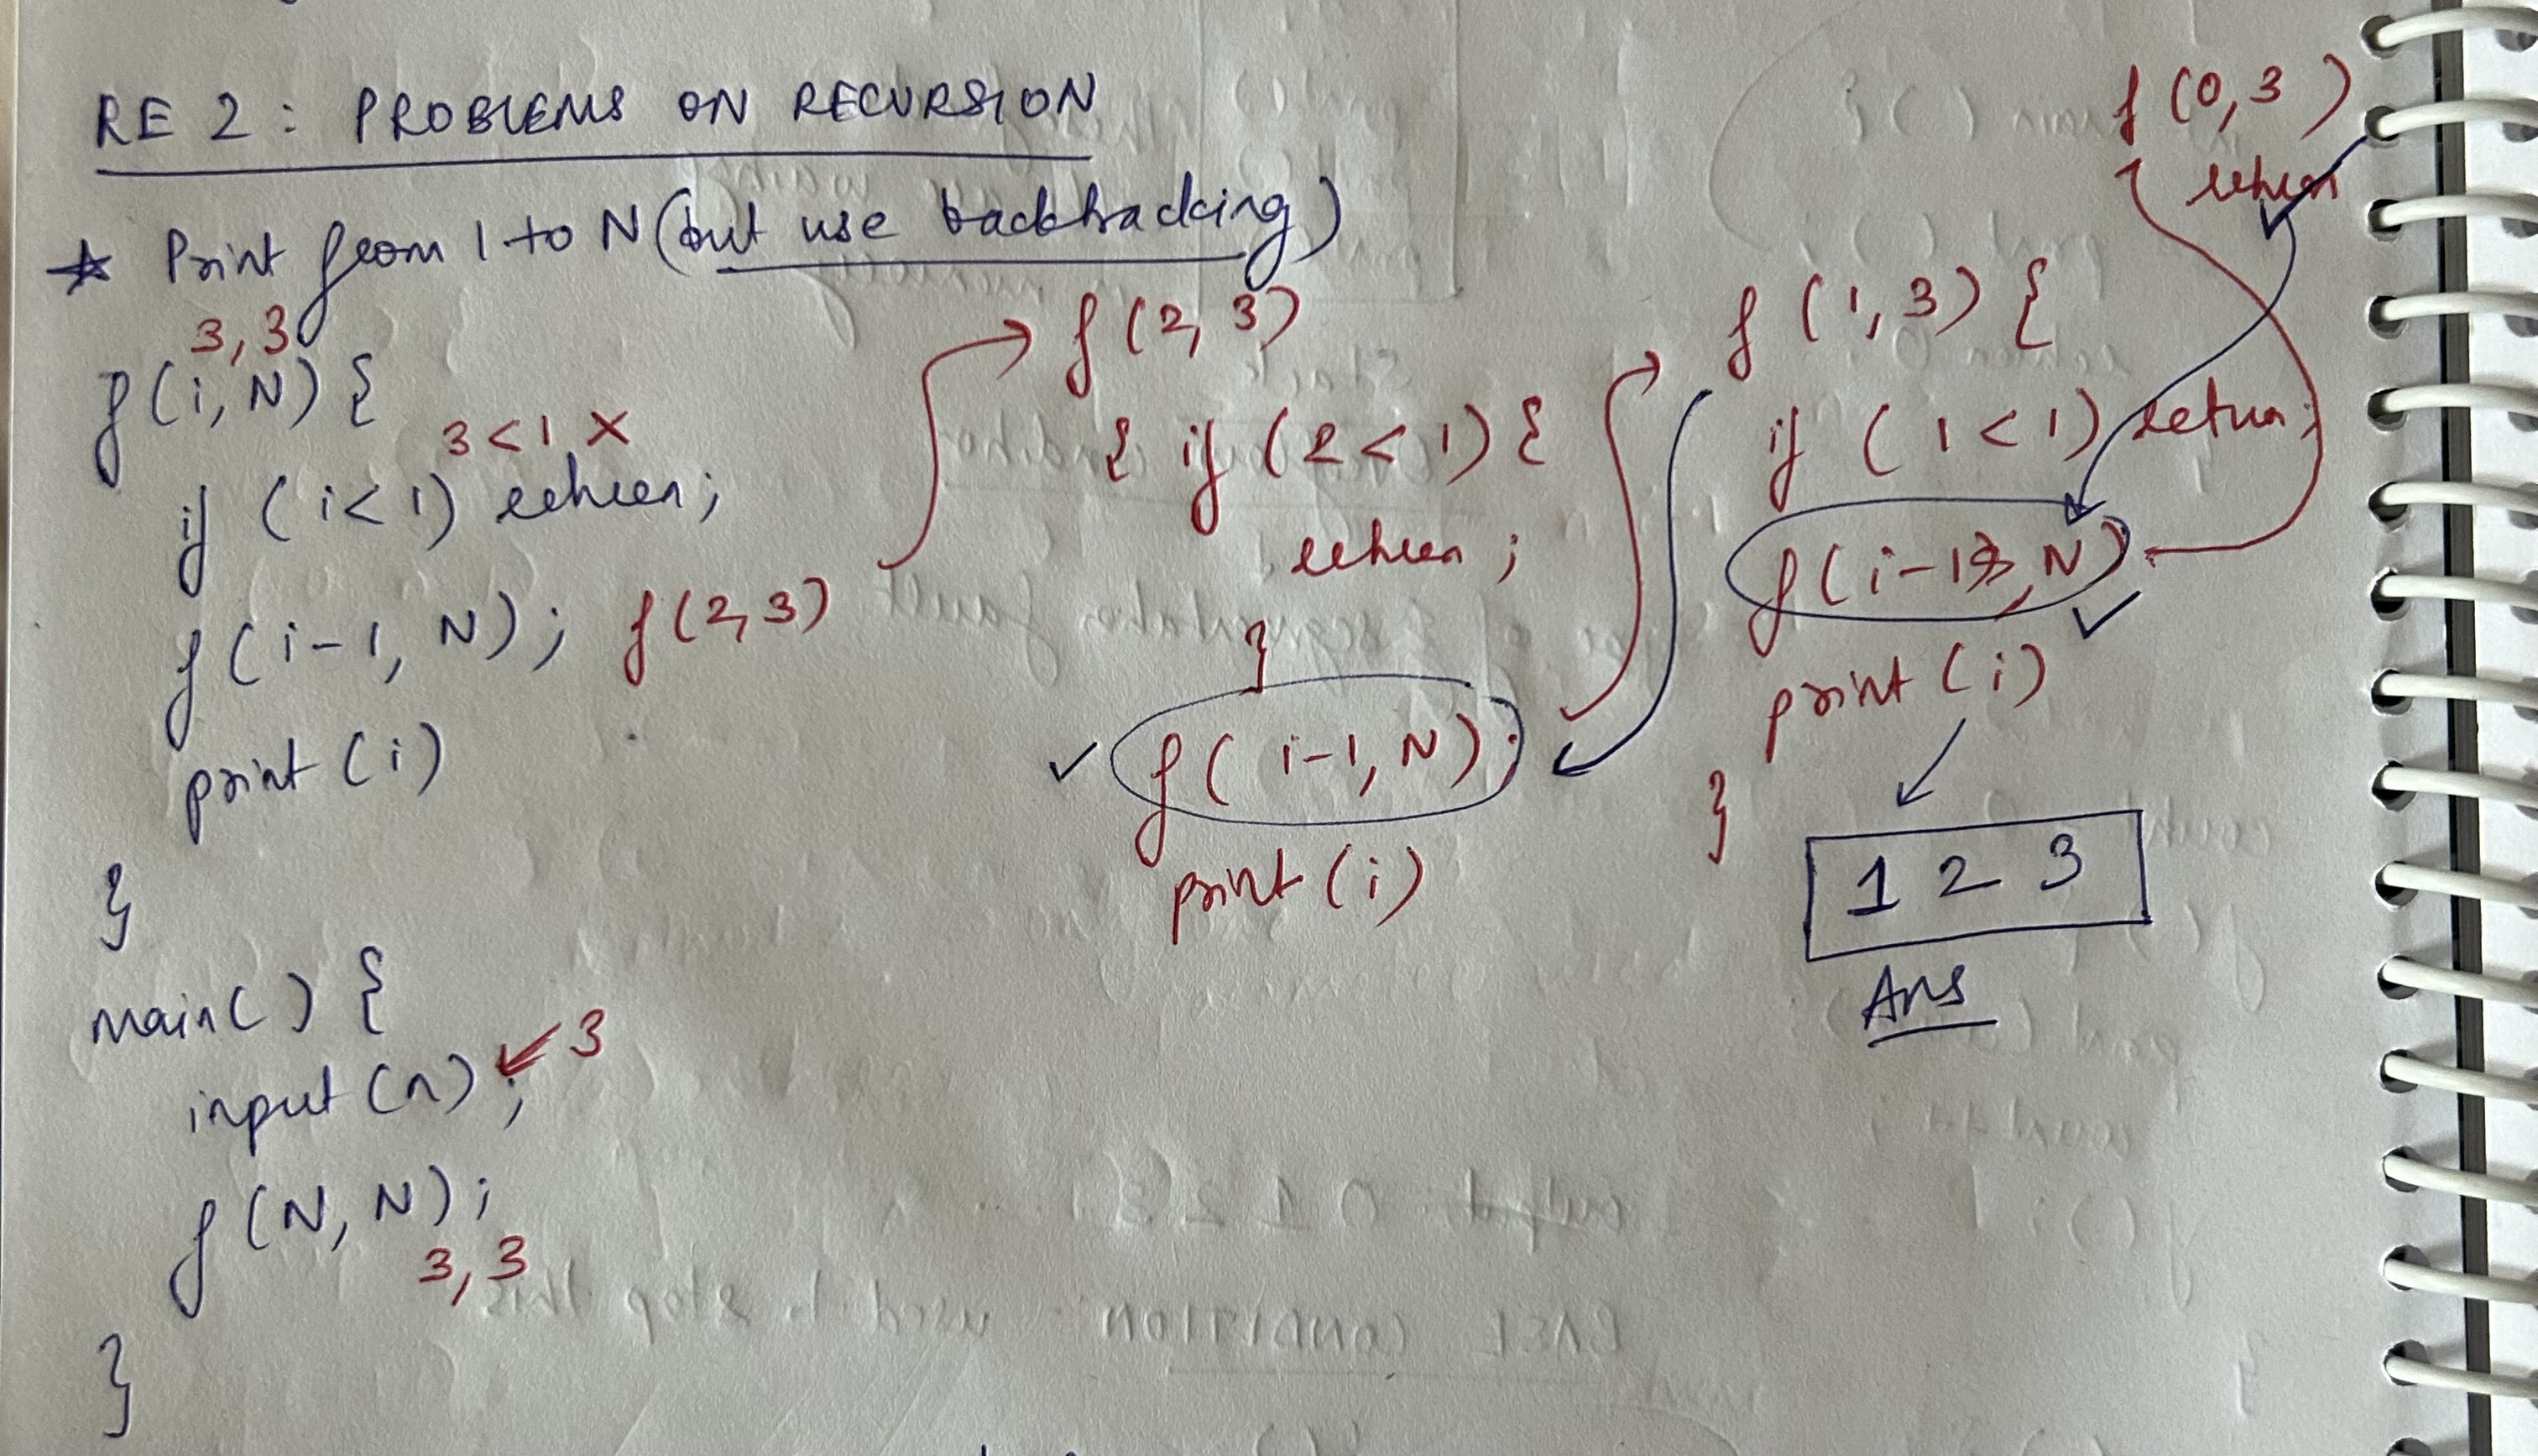 RE 2 : PROBLEMS ON RECURSION
★ Print from 1 to N (but use backtracking)
3, 3
f(i, N) {
3 < 1 ×
if (i < 1) return;
f(i-1, N); f(2, 3)
print (i)
}
main( ) {
input (n); ↙ 3
f (N, N);
3, 3
}
f (2, 3)
{ if (2 < 1) {
return ;
}
✓ f( i-1, N);
print (i)
f (1, 3) {
if ( 1 < 1) return;
f(i-1, N) ✓
print (i)
}
1 2 3
Ans
f (0, 3 )
return